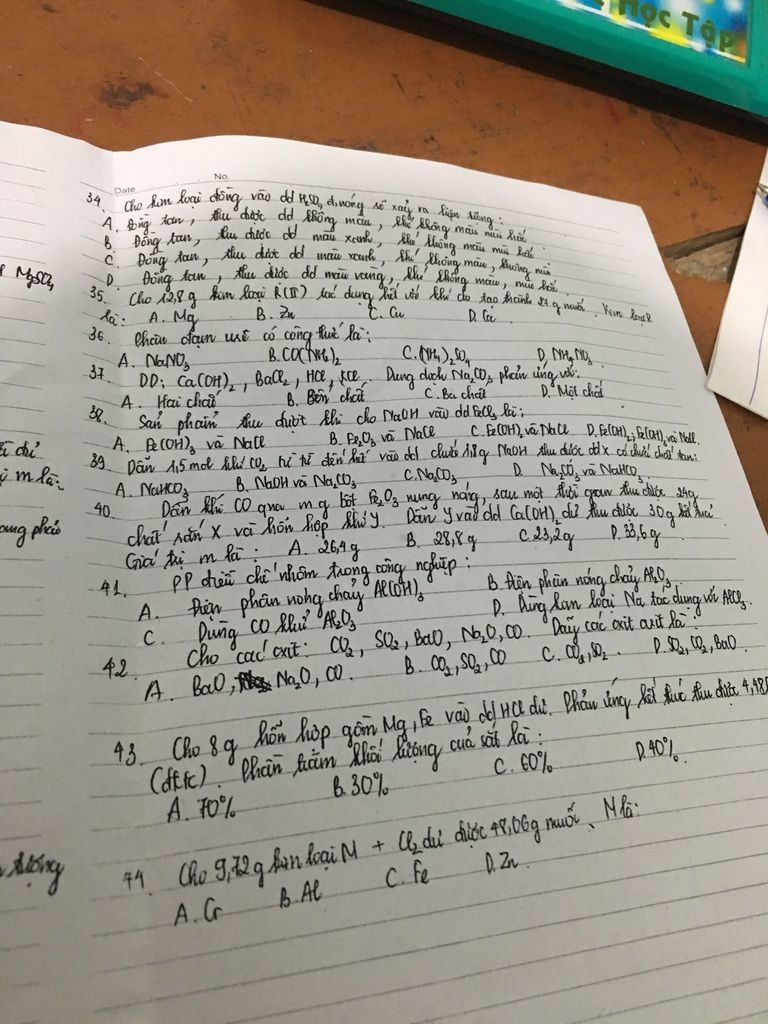 Học Tập
Date No.
34. Cho kim loại đồng vào dd H₂SO₄ đ, nóng sẽ xảy ra hiện tượng:
A. Đồng tan, thu được dd không màu, khí không màu mùi hắc
B. Đồng tan, thu được dd màu xanh, khí không màu mùi hắc
C. Đồng tan, thu được dd màu xanh, khí không màu, không mùi
D. Đồng tan, thu được dd màu vàng, khí không màu, mùi hắc.
35. Cho 12,8 g kim loại R(II) tác dụng hết với khí clo tạo thành 27 g muối. Kim loại R
là: A. Mg B. Zn C. Cu D. Ca
36. Phân đạm urê có công thức là:
A. NaNO₃ B. CO(NH₂)₂ C. (NH₄)₂SO₄ D. NH₄NO₃
37. DD: Ca(OH)₂, BaCl₂, HCl, KCl. Dung dịch Na₂CO₃ phản ứng với:
A. Hai chất B. Bốn chất C. Ba chất D. Một chất
38. Sản phẩm thu được khi cho NaOH vào dd FeCl₃ là:
A. Fe(OH)₃ và NaCl B. Fe₂O₃ và NaCl C. Fe(OH)₂ và NaCl D. Fe(OH)₂, Fe(OH)₃ và NaCl.
39. Dẫn 1,5 mol khí CO₂ từ từ đến hết vào dd chứa NaOH thu được dd X có chứa chất tan:
A. NaHCO₃ B. NaOH và Na₂CO₃ C. Na₂CO₃ D. Na₂CO₃ và NaHCO₃.
40. Dẫn khí CO qua m g bột Fe₂O₃ nung nóng, sau một thời gian thu được 24g
chất rắn X và hỗn hợp khí Y. Dẫn Y vào dd Ca(OH)₂ dư thu được 30 g kết tủa
Giá trị m là: A. 26,4 g B. 28,8 g C. 23,2 g D. 33,6 g
41. PP điều chế nhôm trong công nghiệp:
A. Điện phân nóng chảy Al(OH)₃ B. Điện phân nóng chảy Al₂O₃
C. Dùng CO khử Al₂O₃ D. Dùng kim loại Na tác dụng với AlCl₃.
42. Cho các oxit: CO₂, SO₂, BaO, Na₂O, CO. Dãy các oxit axit là:
A. BaO, Na₂O, CO. B. CO₂, SO₂, CO C. CO₂, SO₂. D. SO₂, CO₂, BaO.
43. Cho 8 g hỗn hợp gồm Mg, Fe vào dd HCl dư. Phản ứng kết thúc thu được 4,48l
(đktc). Phần trăm khối lượng của sắt là:
A. 70% B. 30% C. 60% D. 40%
44. Cho 9,72 g kim loại M + Cl₂ dư được 48,06 g muối. M là:
A. Cr B. Al C. Fe D. Zn
MgSO₄
m là: